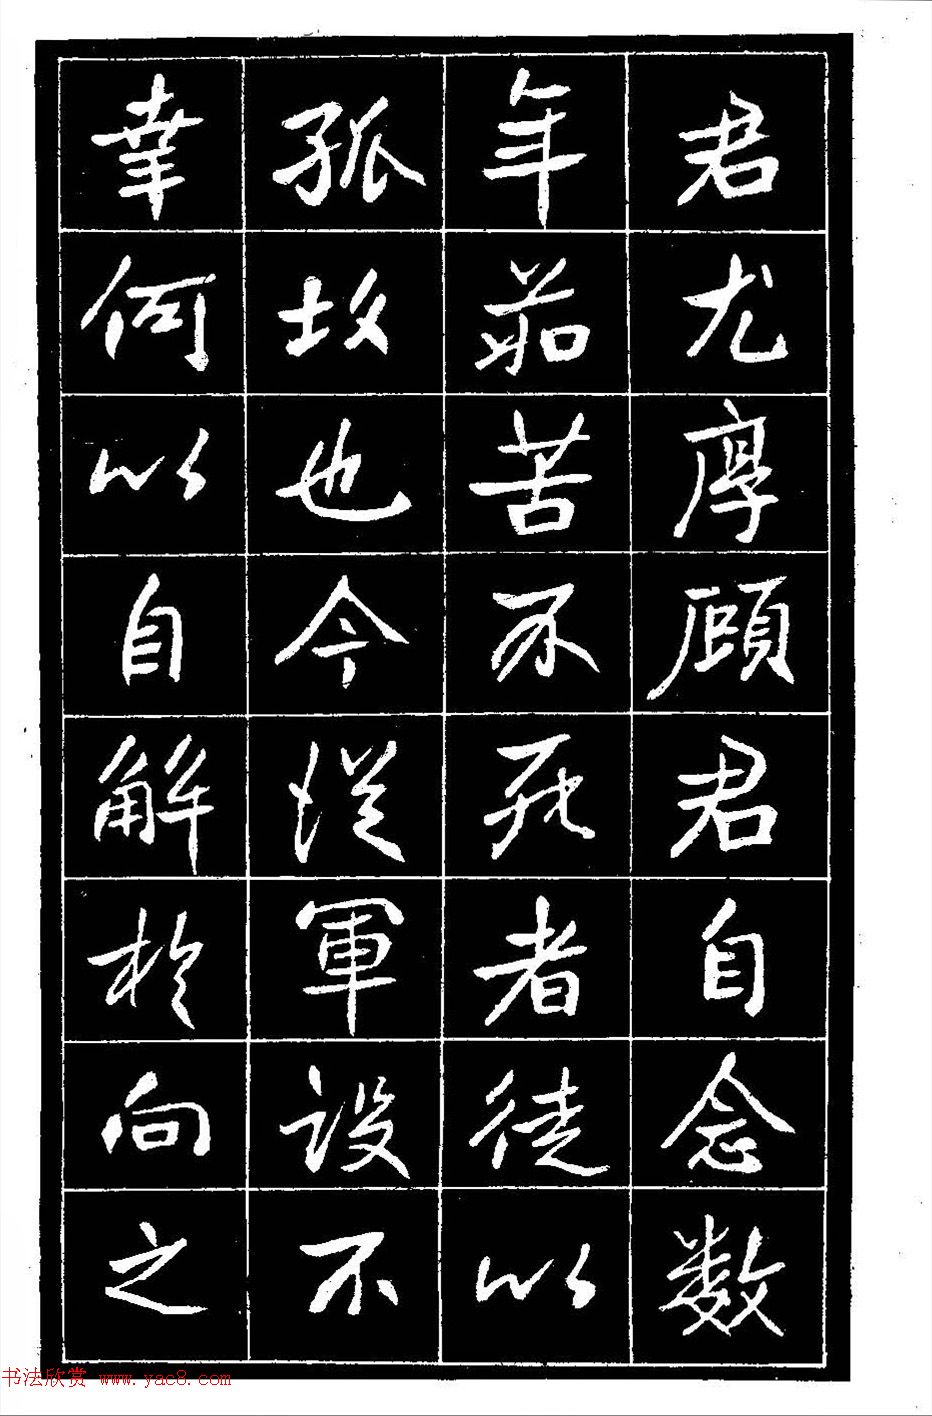 君尤厚顧君自念数
年茹苦不死者徒以
孤故也今從軍設不
幸何以自解於向之
书法欣赏 www.yac8.com